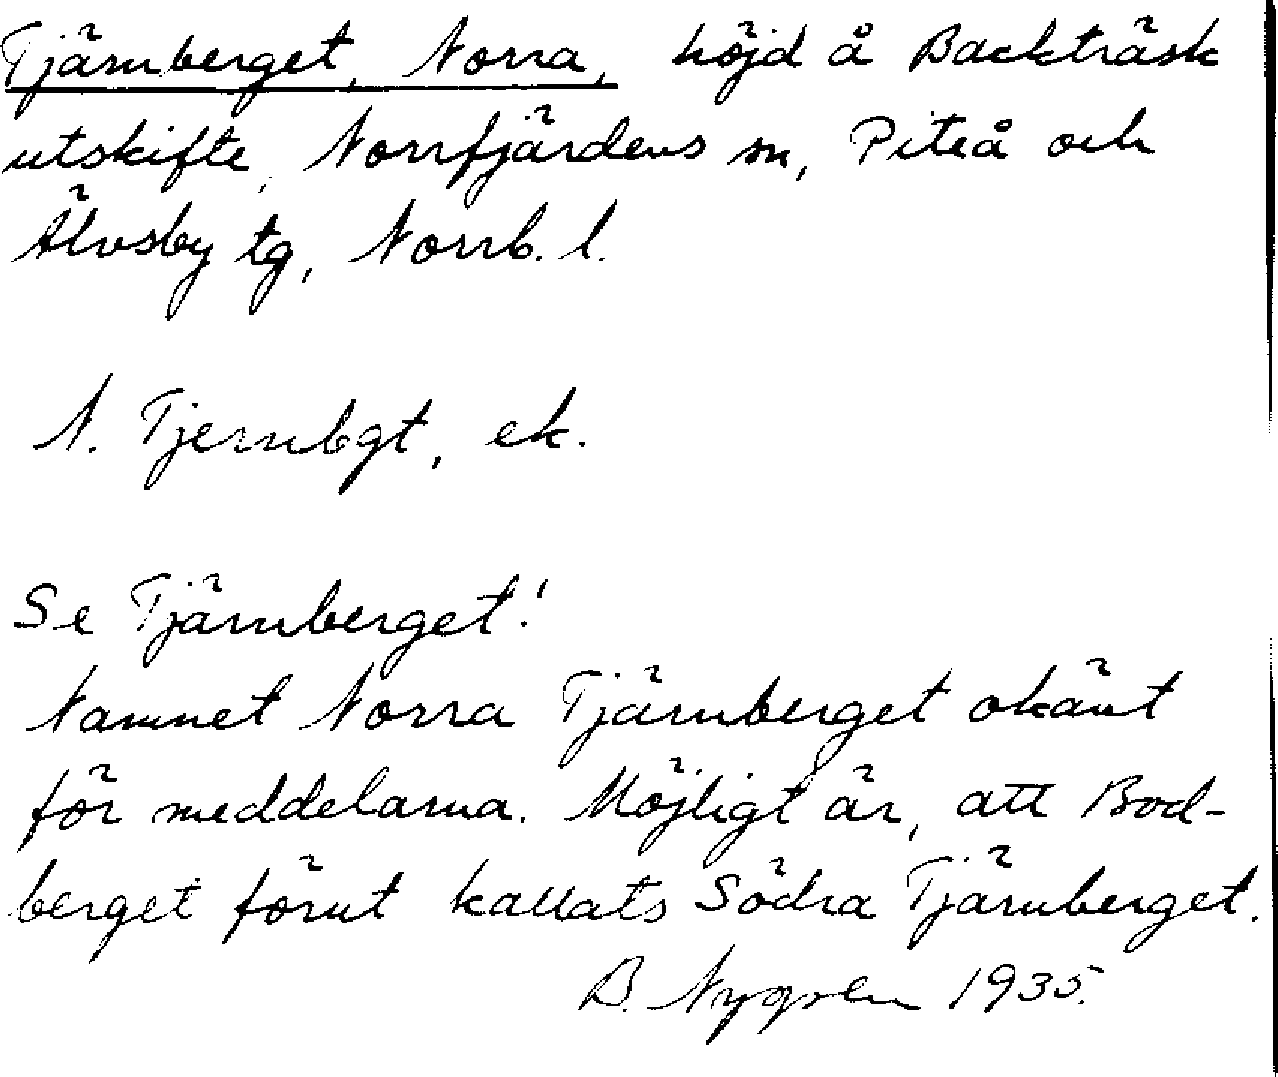 Tjärnberget, Norra, höjd å Backträsk
utskifte, Norrfjärdens sn, Piteå och
Älvsby tg, Norrb. l.
N. Tjernbgt, ek.
Se Tjärnberget!
Namnet Norra Tjärnberget okänt
för meddelarna. Möjligt är, att Bod-
berget förut kallats Södra Tjärnberget.
B. Nygren 1935.